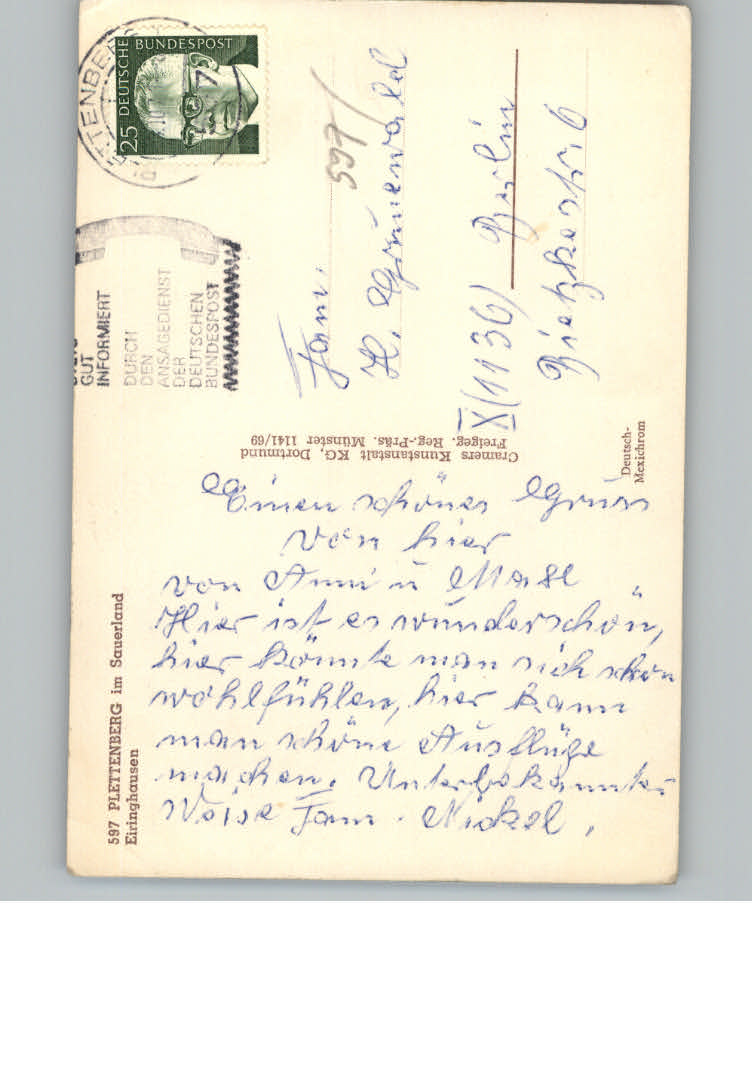 25 DEUTSCHE BUNDESPOST
GUT
INFORMIERT
DURCH
DEN
ANSAGEDIENST
DER
DEUTSCHEN
BUNDESPOST
597/
Fam.
H. Grünewald
X(1136) Berlin
Bietzkestr. 6
Cramers Kunstanstalt KG, Dortmund
Freigeg. Reg.-Präs. Münster 1141/69
Deutsch-
Mexichrom
597 PLETTENBERG im Sauerland
Eiringhausen
Einen schönen Gruss
von hier
von Anni u
Hier ist es wunderschön,
hier könnte man sich schon
wohlfühlen, hier kann
man schöne Ausflüge
machen. Unterbekannter
Weise Fam. Nickel.